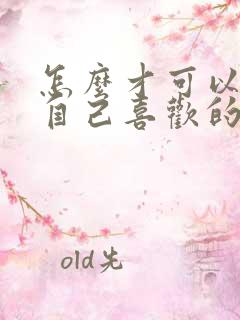 怎麼才可以
自己喜歡的
old先